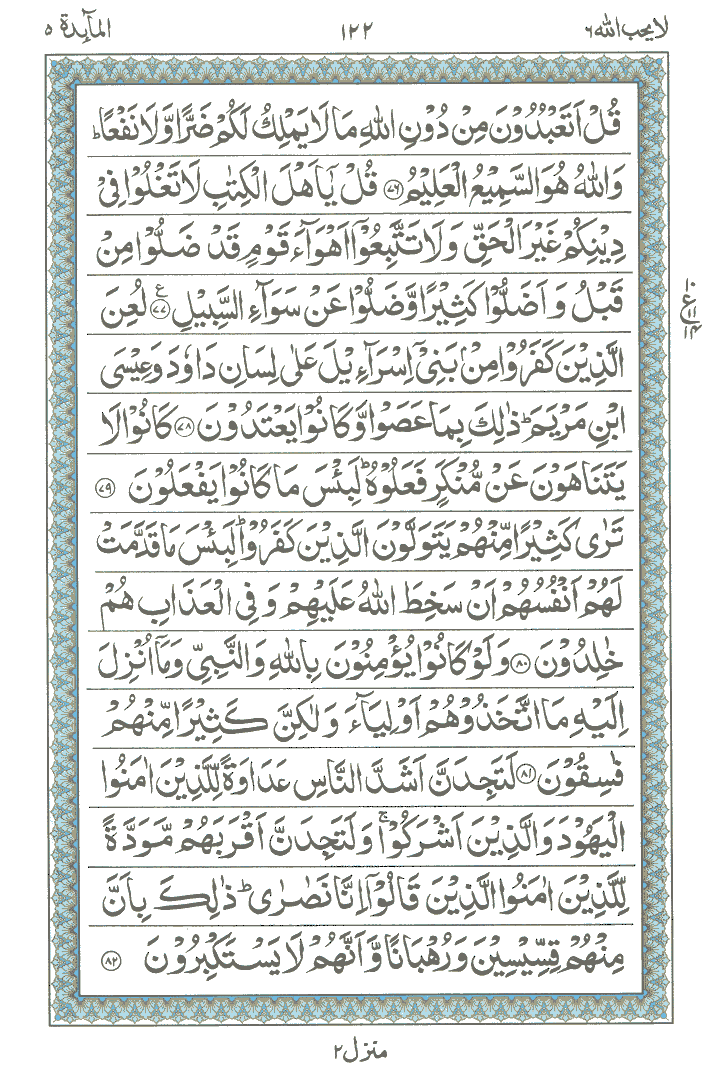 لا یحب الله ۶ ۱۲۲ المآئدة ۵
قُلْ اَتَعْبُدُوْنَ مِنْ دُوْنِ اللّٰهِ مَا لَا یَمْلِكُ لَكُمْ ضَرًّا وَّلَا نَفْعًا ؕ
وَاللّٰهُ هُوَ السَّمِیْعُ الْعَلِیْمُ ﴿۷۶﴾ قُلْ یٰۤاَهْلَ الْكِتٰبِ لَا تَغْلُوْا فِیْ
دِیْنِكُمْ غَیْرَ الْحَقِّ وَلَا تَتَّبِعُوْۤا اَهْوَآءَ قَوْمٍ قَدْ ضَلُّوْا مِنْ
قَبْلُ وَاَضَلُّوْا كَثِیْرًا وَّضَلُّوْا عَنْ سَوَآءِ السَّبِیْلِ ﴿۷۷﴾ ع لُعِنَ
الَّذِیْنَ كَفَرُوْا مِنْۢ بَنِیْۤ اِسْرَآءِیْلَ عَلٰی لِسَانِ دَاوٗدَ وَعِیْسَی
ابْنِ مَرْیَمَ ؕ ذٰلِكَ بِمَا عَصَوْا وَّكَانُوْا یَعْتَدُوْنَ ﴿۷۸﴾ كَانُوْا لَا
یَتَنَاهَوْنَ عَنْ مُّنْكَرٍ فَعَلُوْهُ ؕ لَبِئْسَ مَا كَانُوْا یَفْعَلُوْنَ ﴿۷۹﴾
تَرٰی كَثِیْرًا مِّنْهُمْ یَتَوَلَّوْنَ الَّذِیْنَ كَفَرُوْا ؕ لَبِئْسَ مَا قَدَّمَتْ
لَهُمْ اَنْفُسُهُمْ اَنْ سَخِطَ اللّٰهُ عَلَیْهِمْ وَفِی الْعَذَابِ هُمْ
خٰلِدُوْنَ ﴿۸۰﴾ وَلَوْ كَانُوْا یُؤْمِنُوْنَ بِاللّٰهِ وَالنَّبِیِّ وَمَاۤ اُنْزِلَ
اِلَیْهِ مَا اتَّخَذُوْهُمْ اَوْلِیَآءَ وَلٰكِنَّ كَثِیْرًا مِّنْهُمْ
فٰسِقُوْنَ ﴿۸۱﴾ لَتَجِدَنَّ اَشَدَّ النَّاسِ عَدَاوَةً لِّلَّذِیْنَ اٰمَنُوا
الْیَهُوْدَ وَالَّذِیْنَ اَشْرَكُوْا ۚ وَلَتَجِدَنَّ اَقْرَبَهُمْ مَّوَدَّةً
لِّلَّذِیْنَ اٰمَنُوا الَّذِیْنَ قَالُوْۤا اِنَّا نَصٰرٰی ؕ ذٰلِكَ بِاَنَّ
مِنْهُمْ قِسِّیْسِیْنَ وَرُهْبَانًا وَّاَنَّهُمْ لَا یَسْتَكْبِرُوْنَ ﴿۸۲﴾
منزل ۲